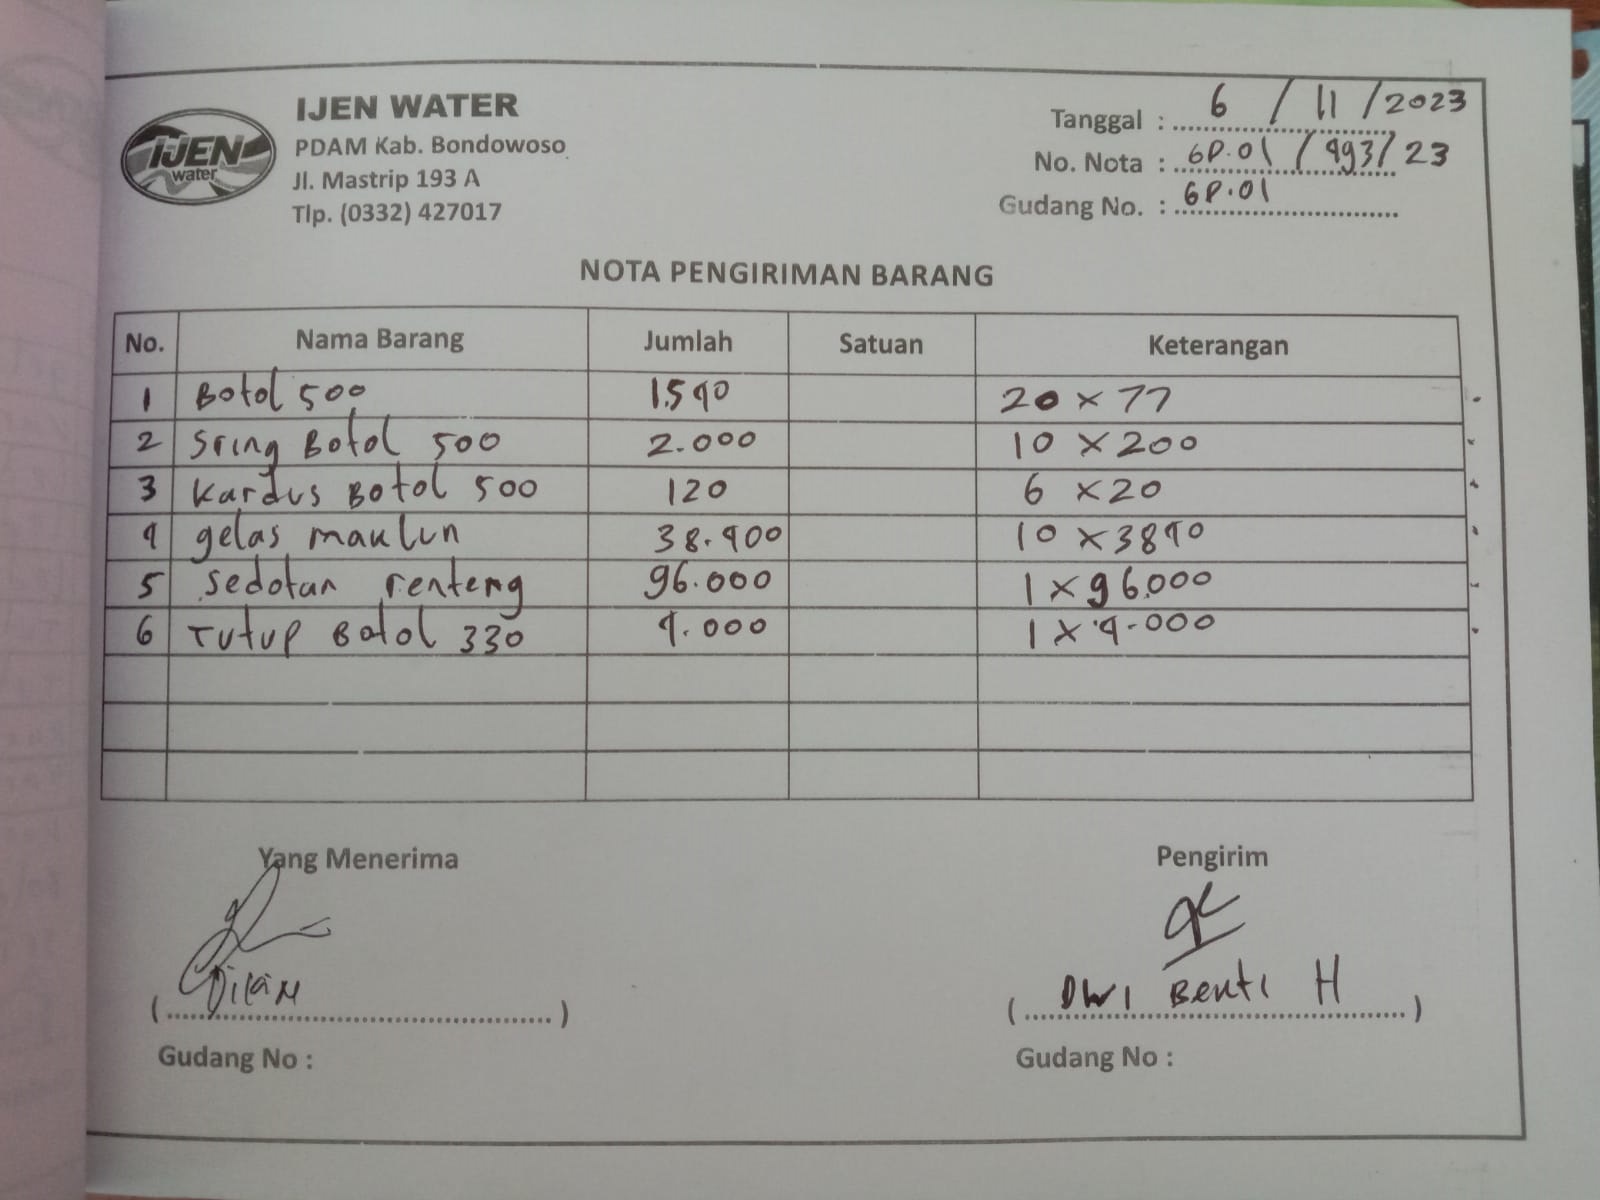 IJEN WATER
PDAM Kab. Bondowoso
Jl. Mastrip 193 A
Tlp. (0332) 427017
IJEN
water
Tanggal : 6 / 11 / 2023
No. Nota : GP.01 / 493 / 23
Gudang No. : GP.01
NOTA PENGIRIMAN BARANG
No. Nama Barang Jumlah Satuan Keterangan
1 Botol 500 1.540 20 x 77
2 Sring Botol 500 2.000 10 x 200
3 Kardus Botol 500 120 6 x 20
4 gelas maklun 38.400 10 x 3840
5 Sedotan renteng 96.000 1 x 96.000
6 Tutup Botol 330 4.000 1 x 4.000
Yang Menerima Pengirim
( ) ( DWI Benti H )
Gudang No : Gudang No :